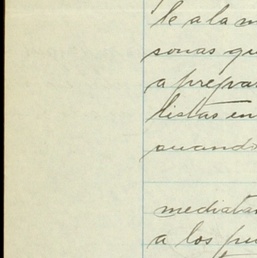 le a la m
sonas qu
a prepar
listas en
cuando
mediata
a los pu